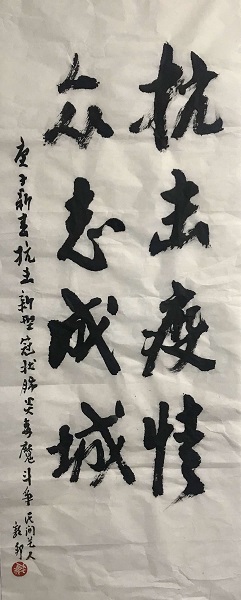 抗击疫情
众志成城
庚子新春抗击新型冠状肺炎毒魔斗争
民间艺人